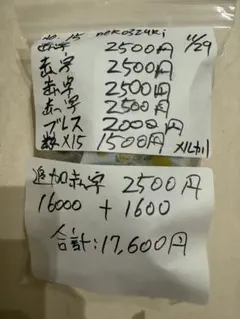 No. 15 nekoszuki 11/29
赤字 2500円
赤字 2500円
赤字 2500円
赤字 2500円
ブレス 2000円
数×15 1500円 メルカリ
追加赤字 2500円
16000 + 1600
合計:17,600円